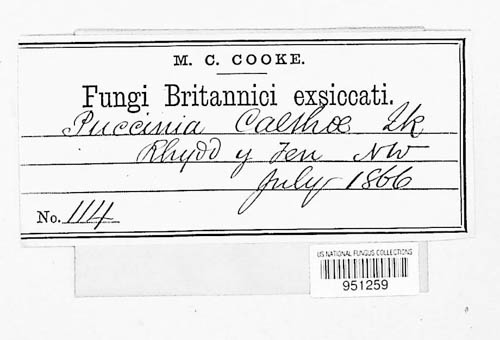 M. C. COOKE.
Fungi Britannici exsiccati.
Puccinia Calthæ Lk
Rhydd y fen NW
July 1866
No. 114
US NATIONAL FUNGUS COLLECTIONS
951259